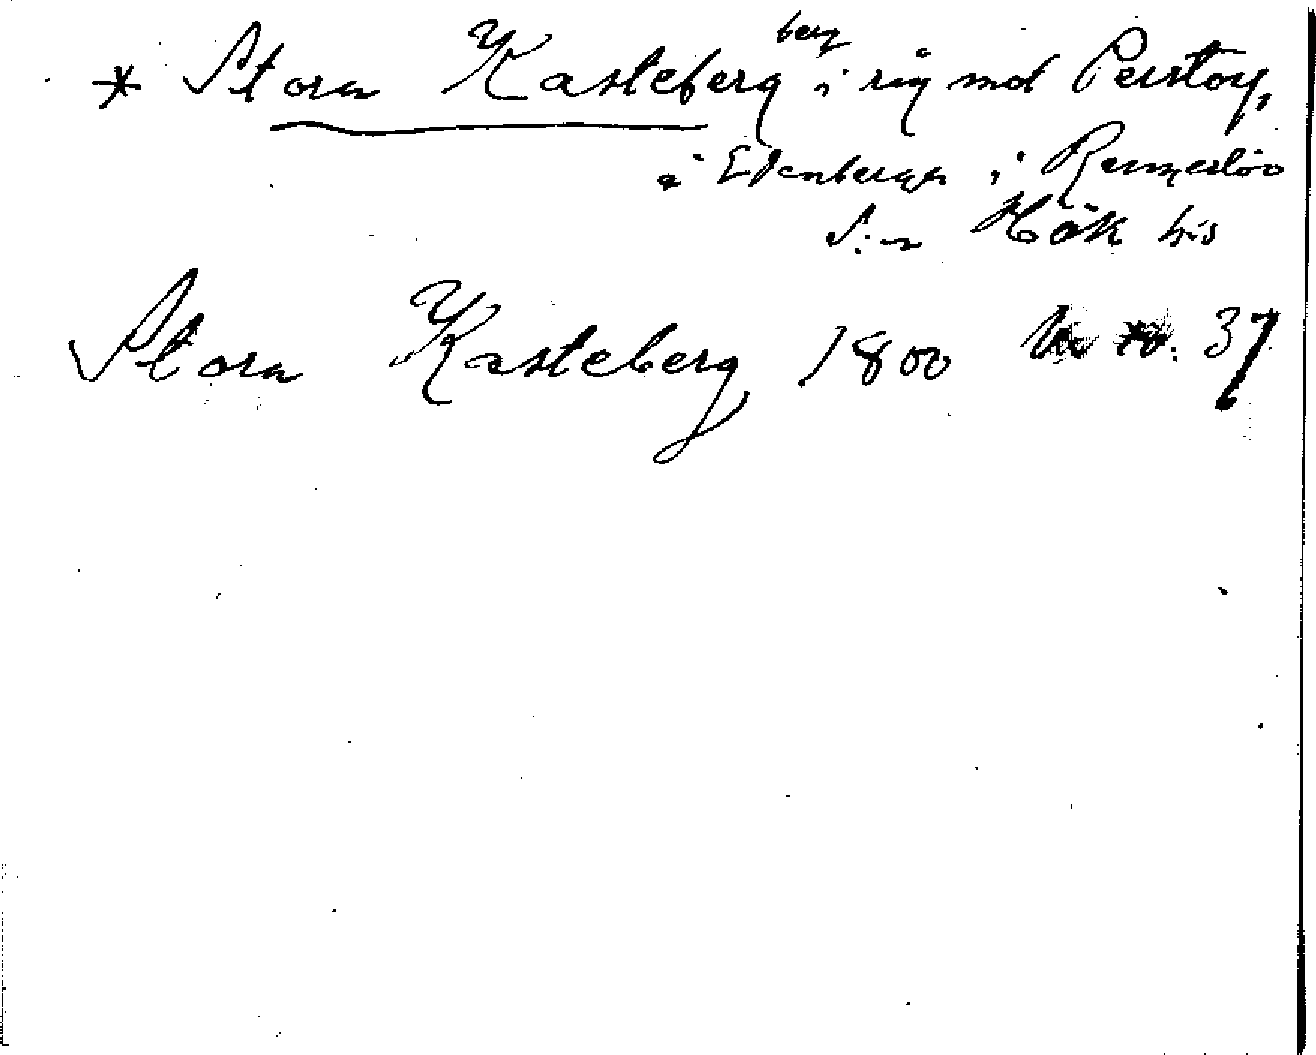 * Stora Kasteberg berg i rå mot Perstorp,
å Edenberga i Renneslöv
S:n Hök hd
Stora Kasteberg 1800 37